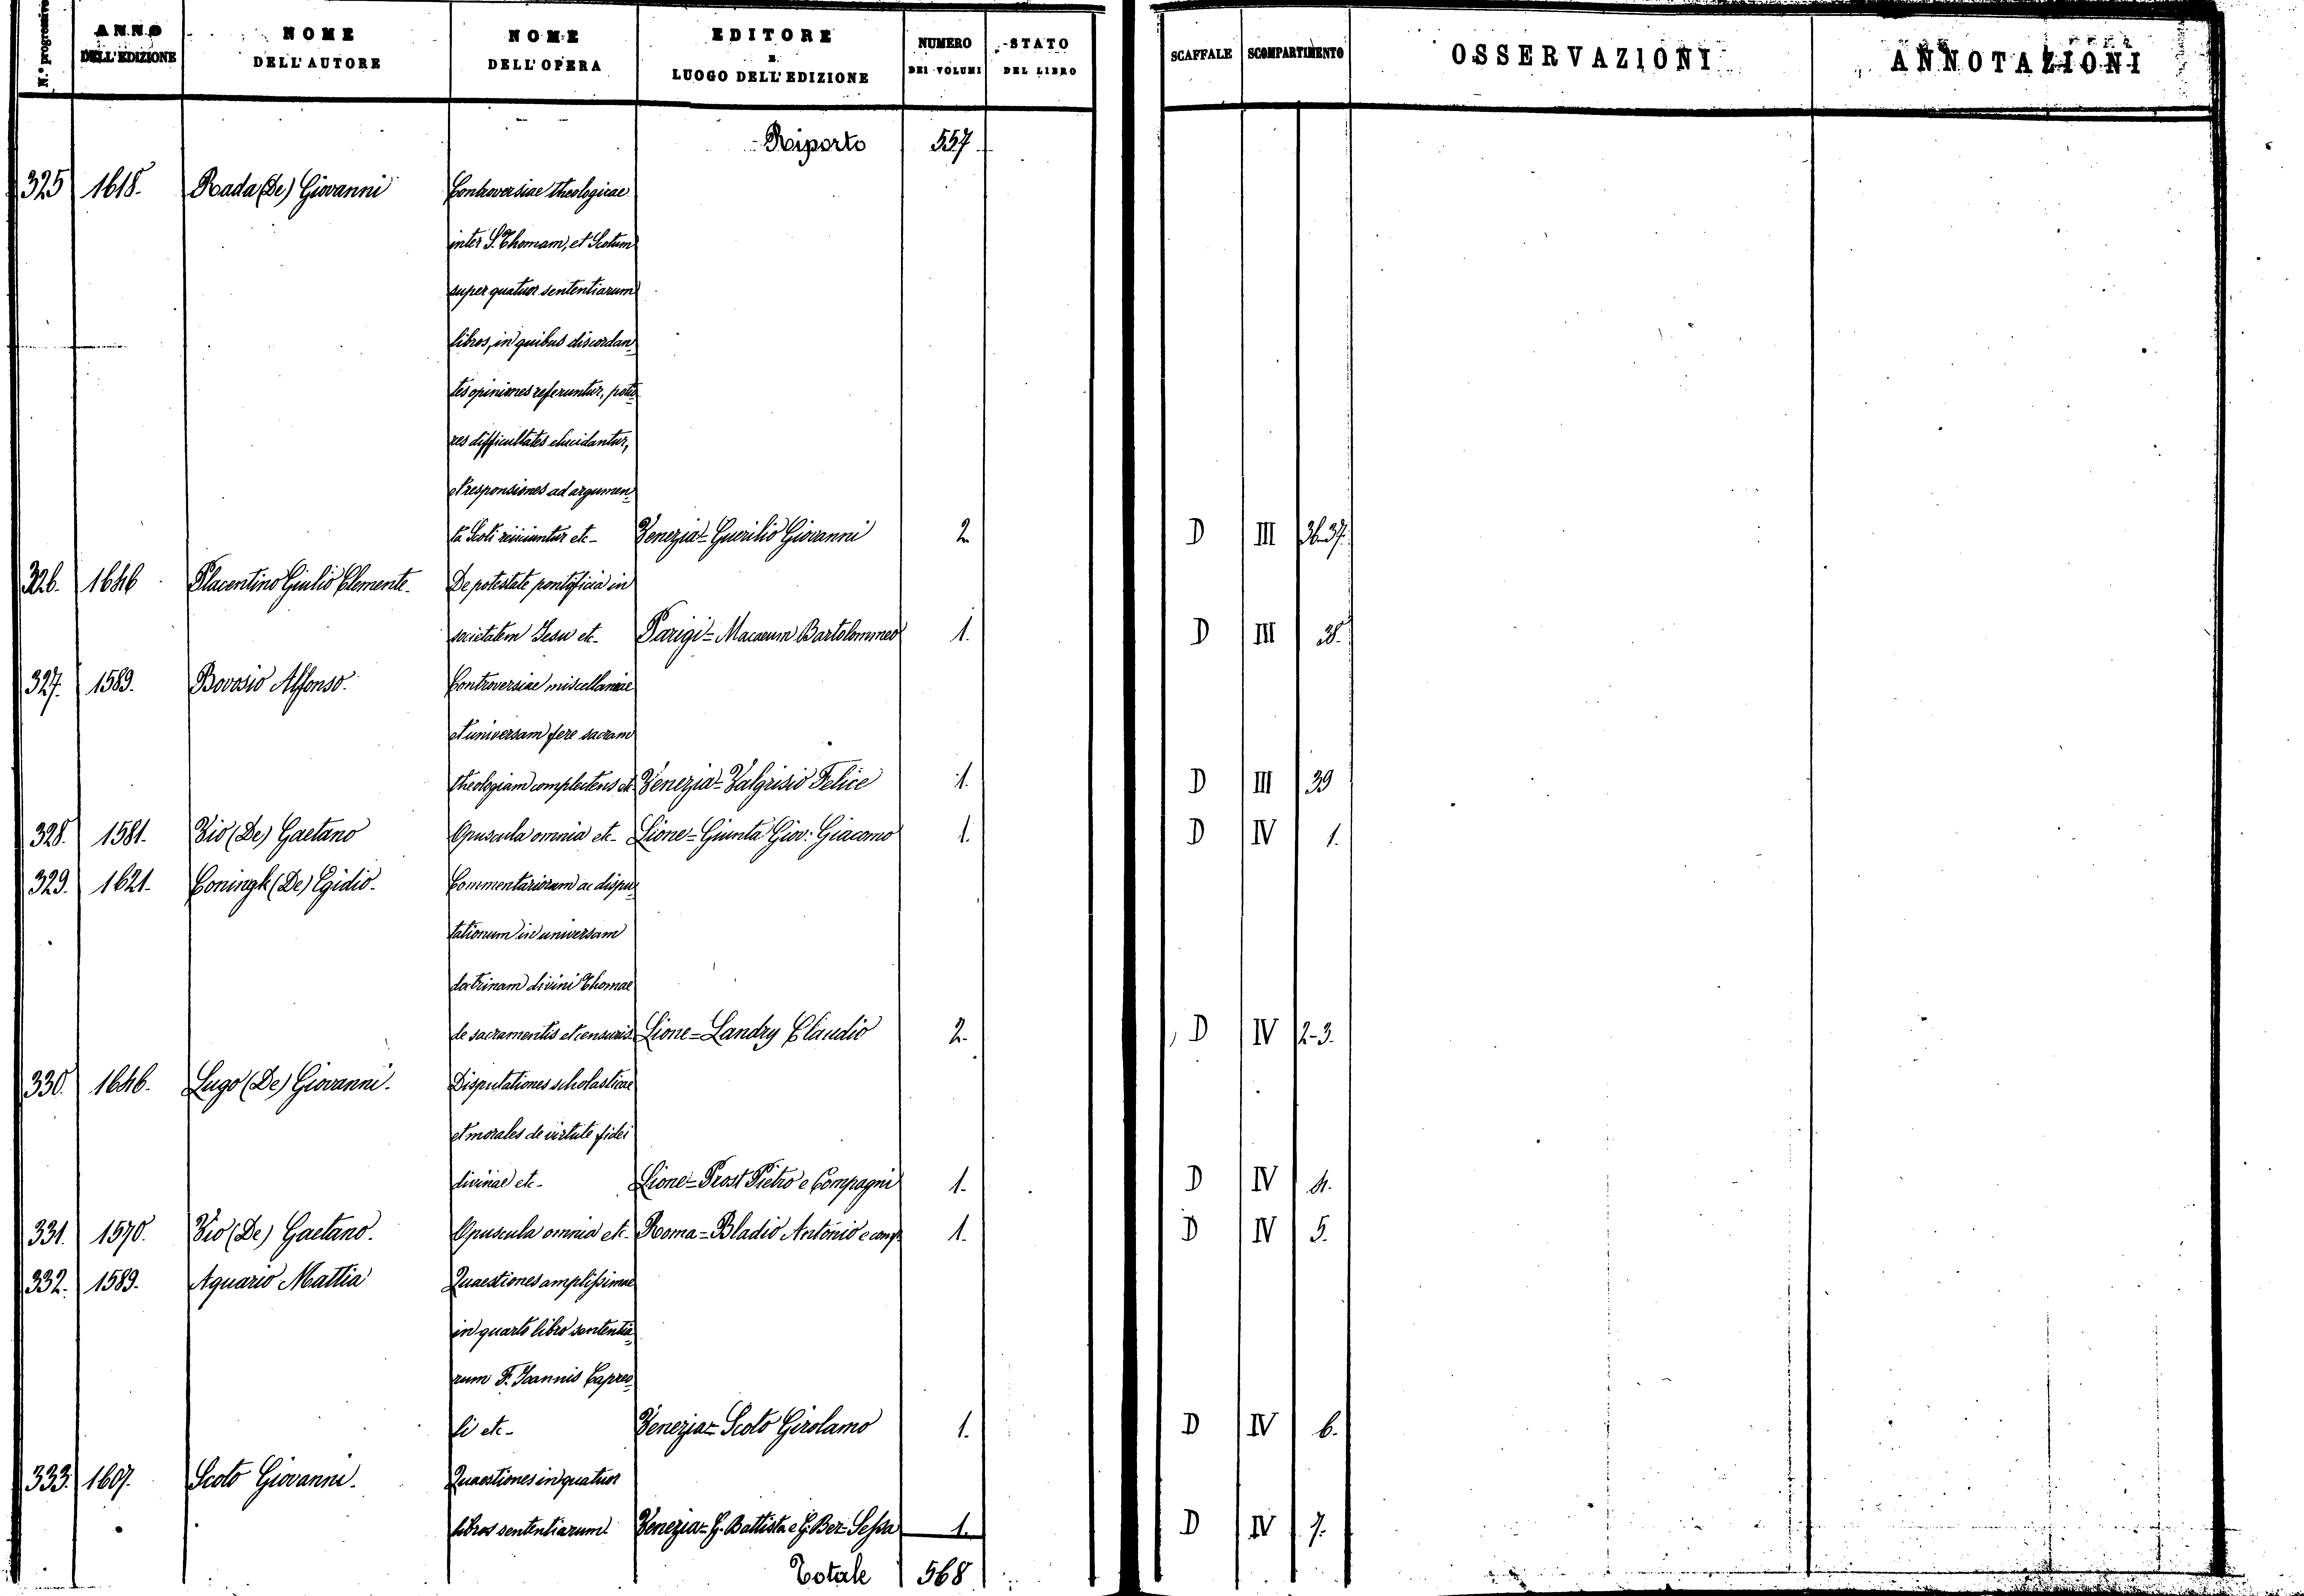 N.° progressivo | ANNO DELL'EDIZIONE | NOME DELL'AUTORE | NOME DELL'OPERA | EDITORE E LUOGO DELL'EDIZIONE | NUMERO DEI VOLUMI | STATO DEL LIBRO | SCAFFALE | SCOMPARTIMENTO | OSSERVAZIONI | ANNOTAZIONI
Riporto 557
325 1618. Rada (De) Giovanni Controversiae theologicae
inter S. Thomam, et Scotum
super quatuor sententiarum
libros, in quibus discordan-
tes opiniones referuntur, potio-
res difficultates elucidantur,
et responsiones ad argumen-
ta Scoti reiiciuntur etc- Venezia= Guerilio Giovanni 2 D III 36-37.
326. 1646 Placentino Giulio Clemente. De potestate pontificia in
societatem Jesu etc- Parigi= Macaeum Bartolommeo 1. D III 38.
327. 1589. Bovosio Alfonso. Controversiae miscellaneae
et universam fere sacram
theologiam complectens etc- Venezia= Valgrisio Felice 1. D III 39
328. 1581. Vio (De) Gaetano Opuscula omnia etc- Lione= Giunta Giov: Giacomo 1. D IV 1.
329. 1621. Coningk (De) Egidio. Commentariorum ac dispu-
tationum in universam
doctrinam divini Thomae
de sacramentis et censuris. Lione= Landry Claudio 2. D IV 2-3.
330. 1646. Lugo (De) Giovanni. Disputationes scholasticae
et morales de virtute fidei
divinae etc- Lione= Prost Pietro e Compagni 1. D IV 4.
331. 1570. Vio (De) Gaetano. Opuscula omnia etc- Roma= Bladio Antonio e comp. 1. D IV 5.
332. 1589. Aquario Mattia Quaestiones amplissimae
in quarto libro sententia-
rum F. Joannis Capreo-
li etc- Venezia= Scoto Girolamo 1. D IV 6.
333. 1607. Scoto Giovanni. Quaestiones in quatuor
libros sententiarum. Venezia= G. Battista e G. Ber= Sessa 1. D IV 7.
Totale 568